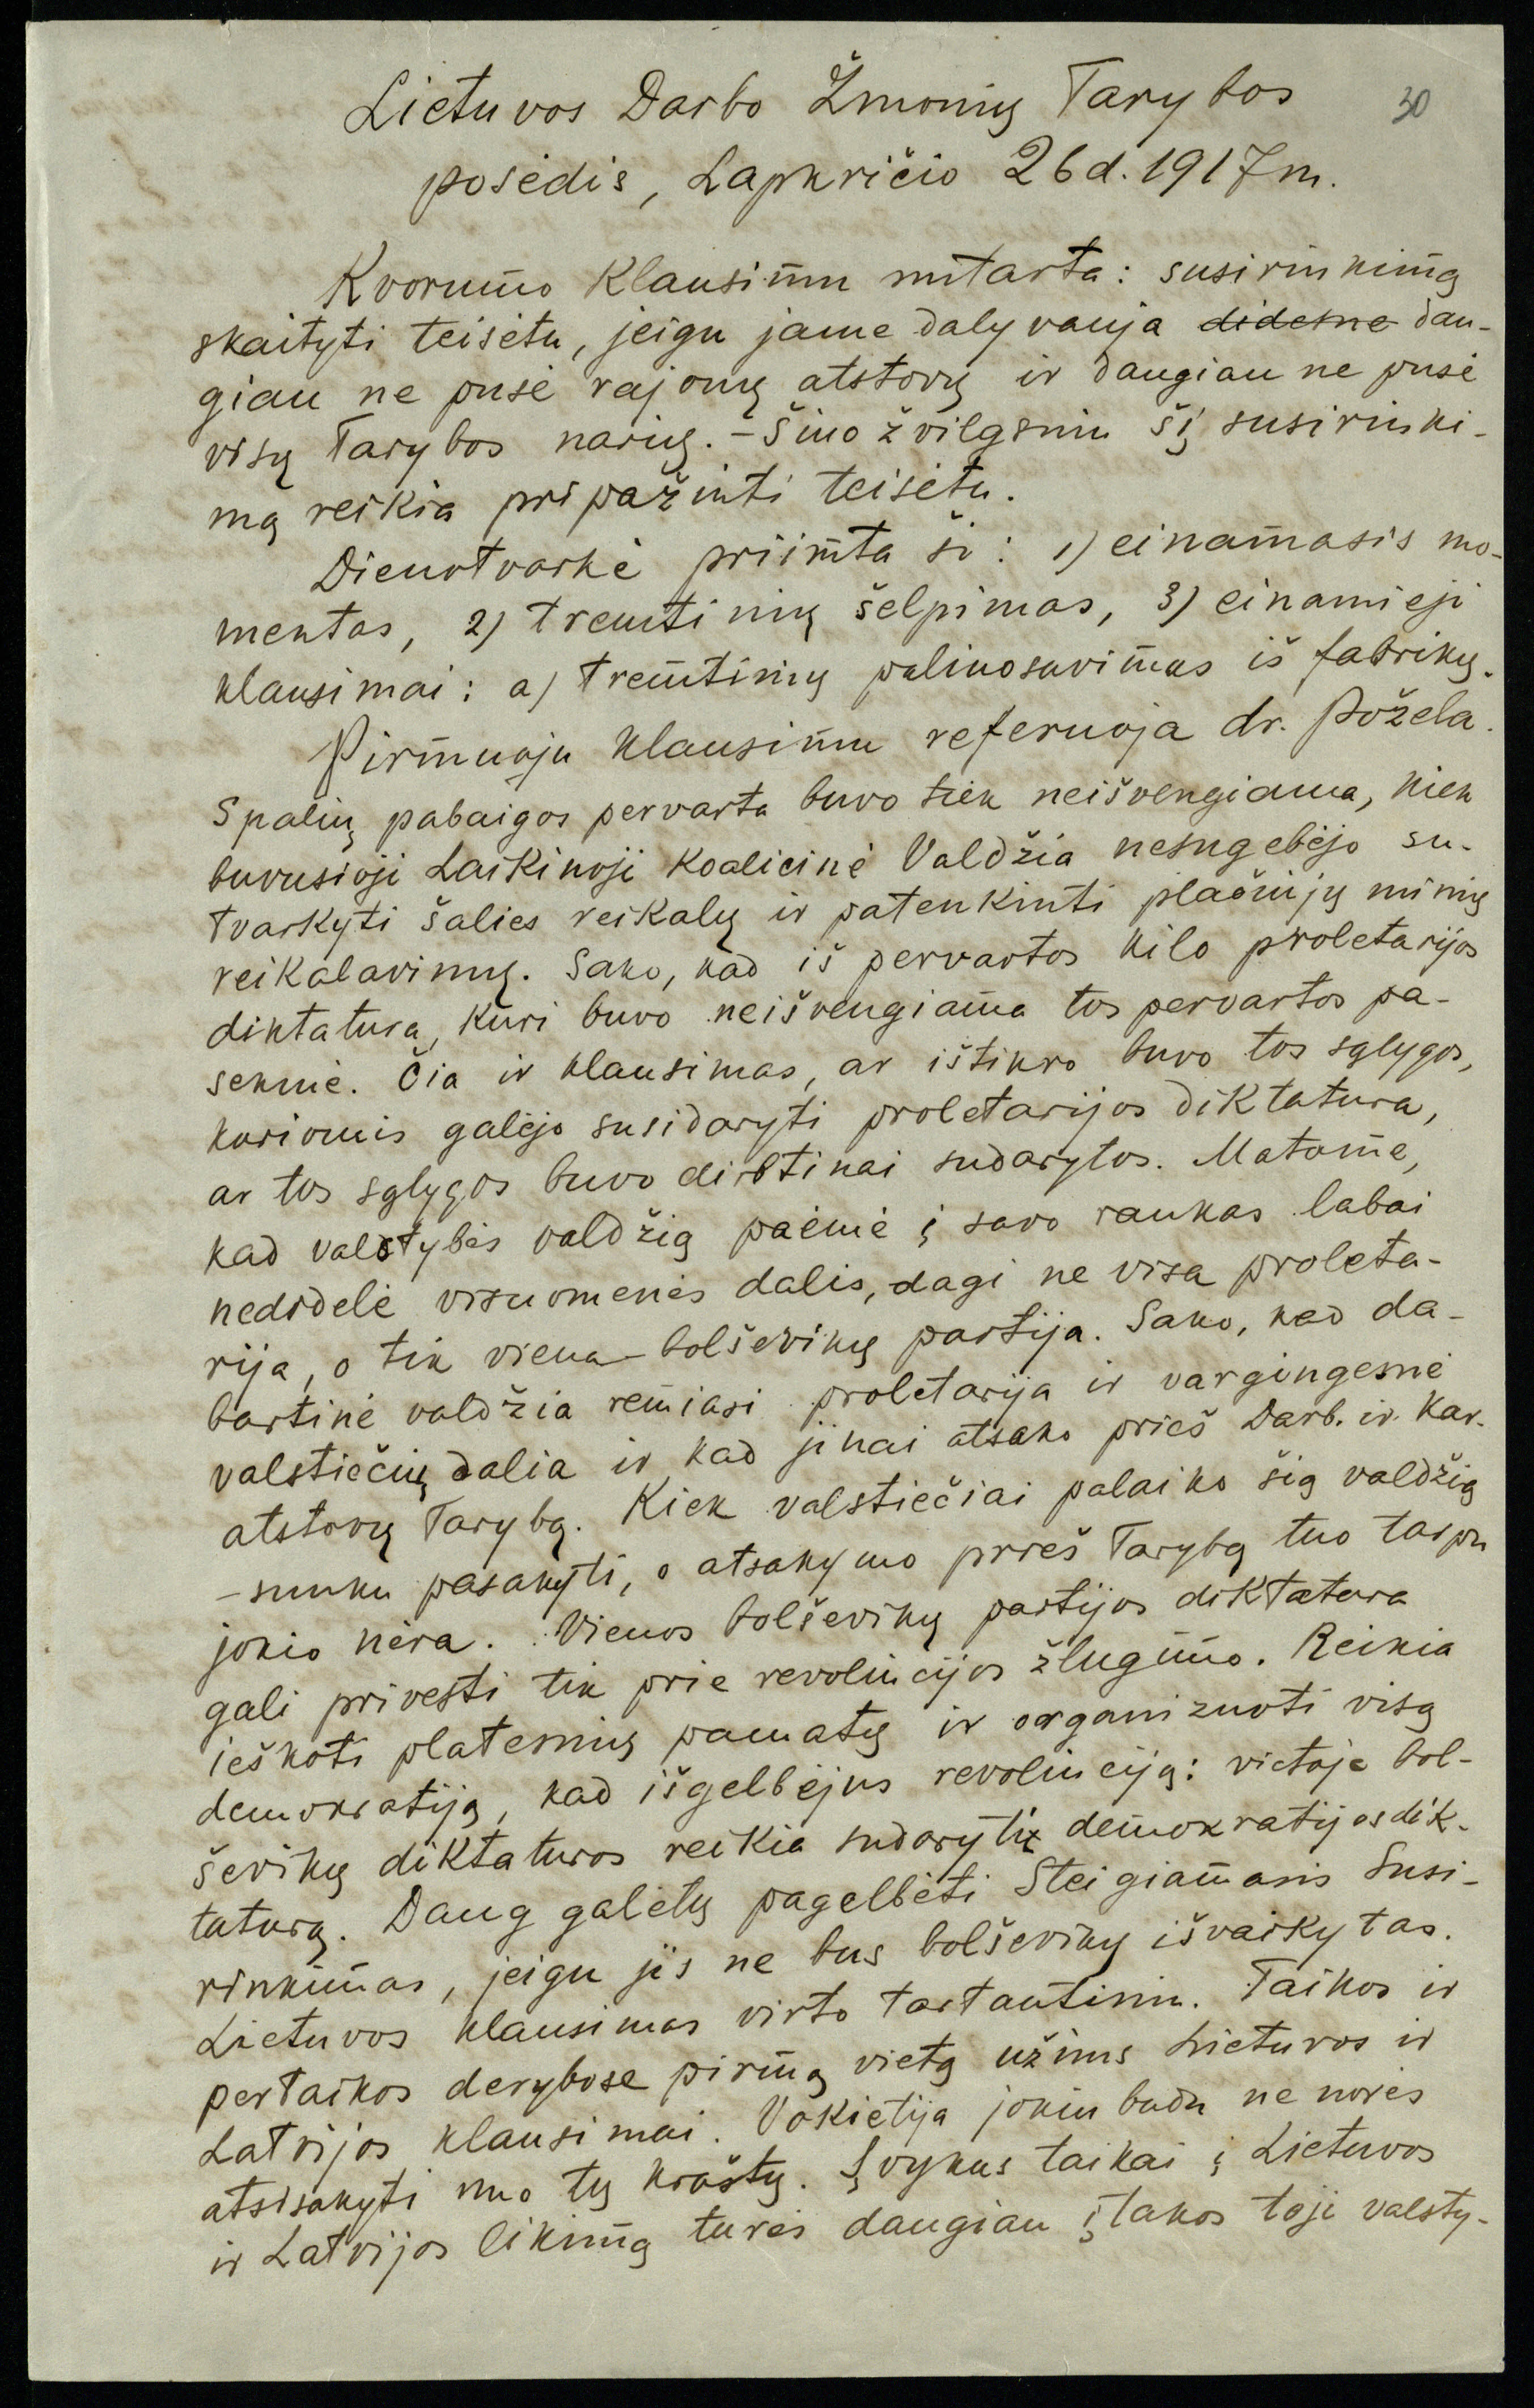 Lietuvos Darbo Žmonių Tarybos
30
posėdis, Lapkričio 26 d. 1917 m.
Kvorumo klausimu nutarta: susirinkimą
skaityti teisėtu, jeigu jame dalyvauja didesnė dau-
giau ne pusė rajonų atstovų ir daugiau ne pusė
visų Tarybos narių. - Šiuo žvilgsniu šį susirinki-
mą reikia pripažinti teisėtu.
Dienotvarkė priimta ši: 1) einamasis mo-
mentas, 2) tremtinių šelpimas, 3) einamieji
klausimai: a) tremtinių paliuosavimas iš fabrikų.
Pirmuoju klausimu referuoja dr. Požela.
Spalių pabaigos pervarta buvo tiek neišvengiama, kiek
buvusioji Laikinoji Koalicinė Valdžia nesugebėjo su-
tvarkyti šalies reikalų ir patenkinti plačiųjų minių
reikalavimų. Sako, kad iš pervartos kilo proletarijos
diktatura, kuri buvo neišvengiama tos pervartos pa-
sekmė. Čia ir klausimas, ar ištikro buvo tos sąlygos,
kuriomis galėjo susidaryti proletarijos diktatura,
ar tos sąlygos buvo dirbtinai sudarytos. Matome,
kad valstybės valdžią paėmė į savo rankas labai
nedidelė visuomenės dalis, dagi ne visa proleta-
rija, o tik viena - bolševikų partija. Sako, kad da-
bartinė valdžia remiasi proletarija ir vargingesne
valstiečių dalia ir kad jinai atsako prieš Darb. ir Kar.
atstovų Tarybą. Kiek valstiečiai palaiko šią valdžią
- sunku pasakyti, o atsakymo prieš Tarybą tuo tarpu
jokio nėra. Vienos bolševikų partijos diktatura
gali privesti tik prie revoliucijos žlugimo. Reikia
ieškoti platesnių pamatų ir organizuoti visą
demokratiją, kad išgelbėjus revoliuciją: vietoje bol-
ševikų diktaturos reikia sudaryti demokratijos dik-
taturą. Daug galėtų pagelbėti Steigiamasis Susi-
rinkimas, jeigu jis ne bus bolševikų išvaikytas.
Lietuvos klausimas virto tartautiniu. Taikos ir
pertaikos derybose pirmą vietą užims Lietuvos ir
Latvijos klausimai. Vokietija jokiu budu ne norės
atsisakyti nuo tų kraštų. Įvykus taikai į Lietuvos
ir Latvijos likimą turės daugiau įtakos toji valsty-